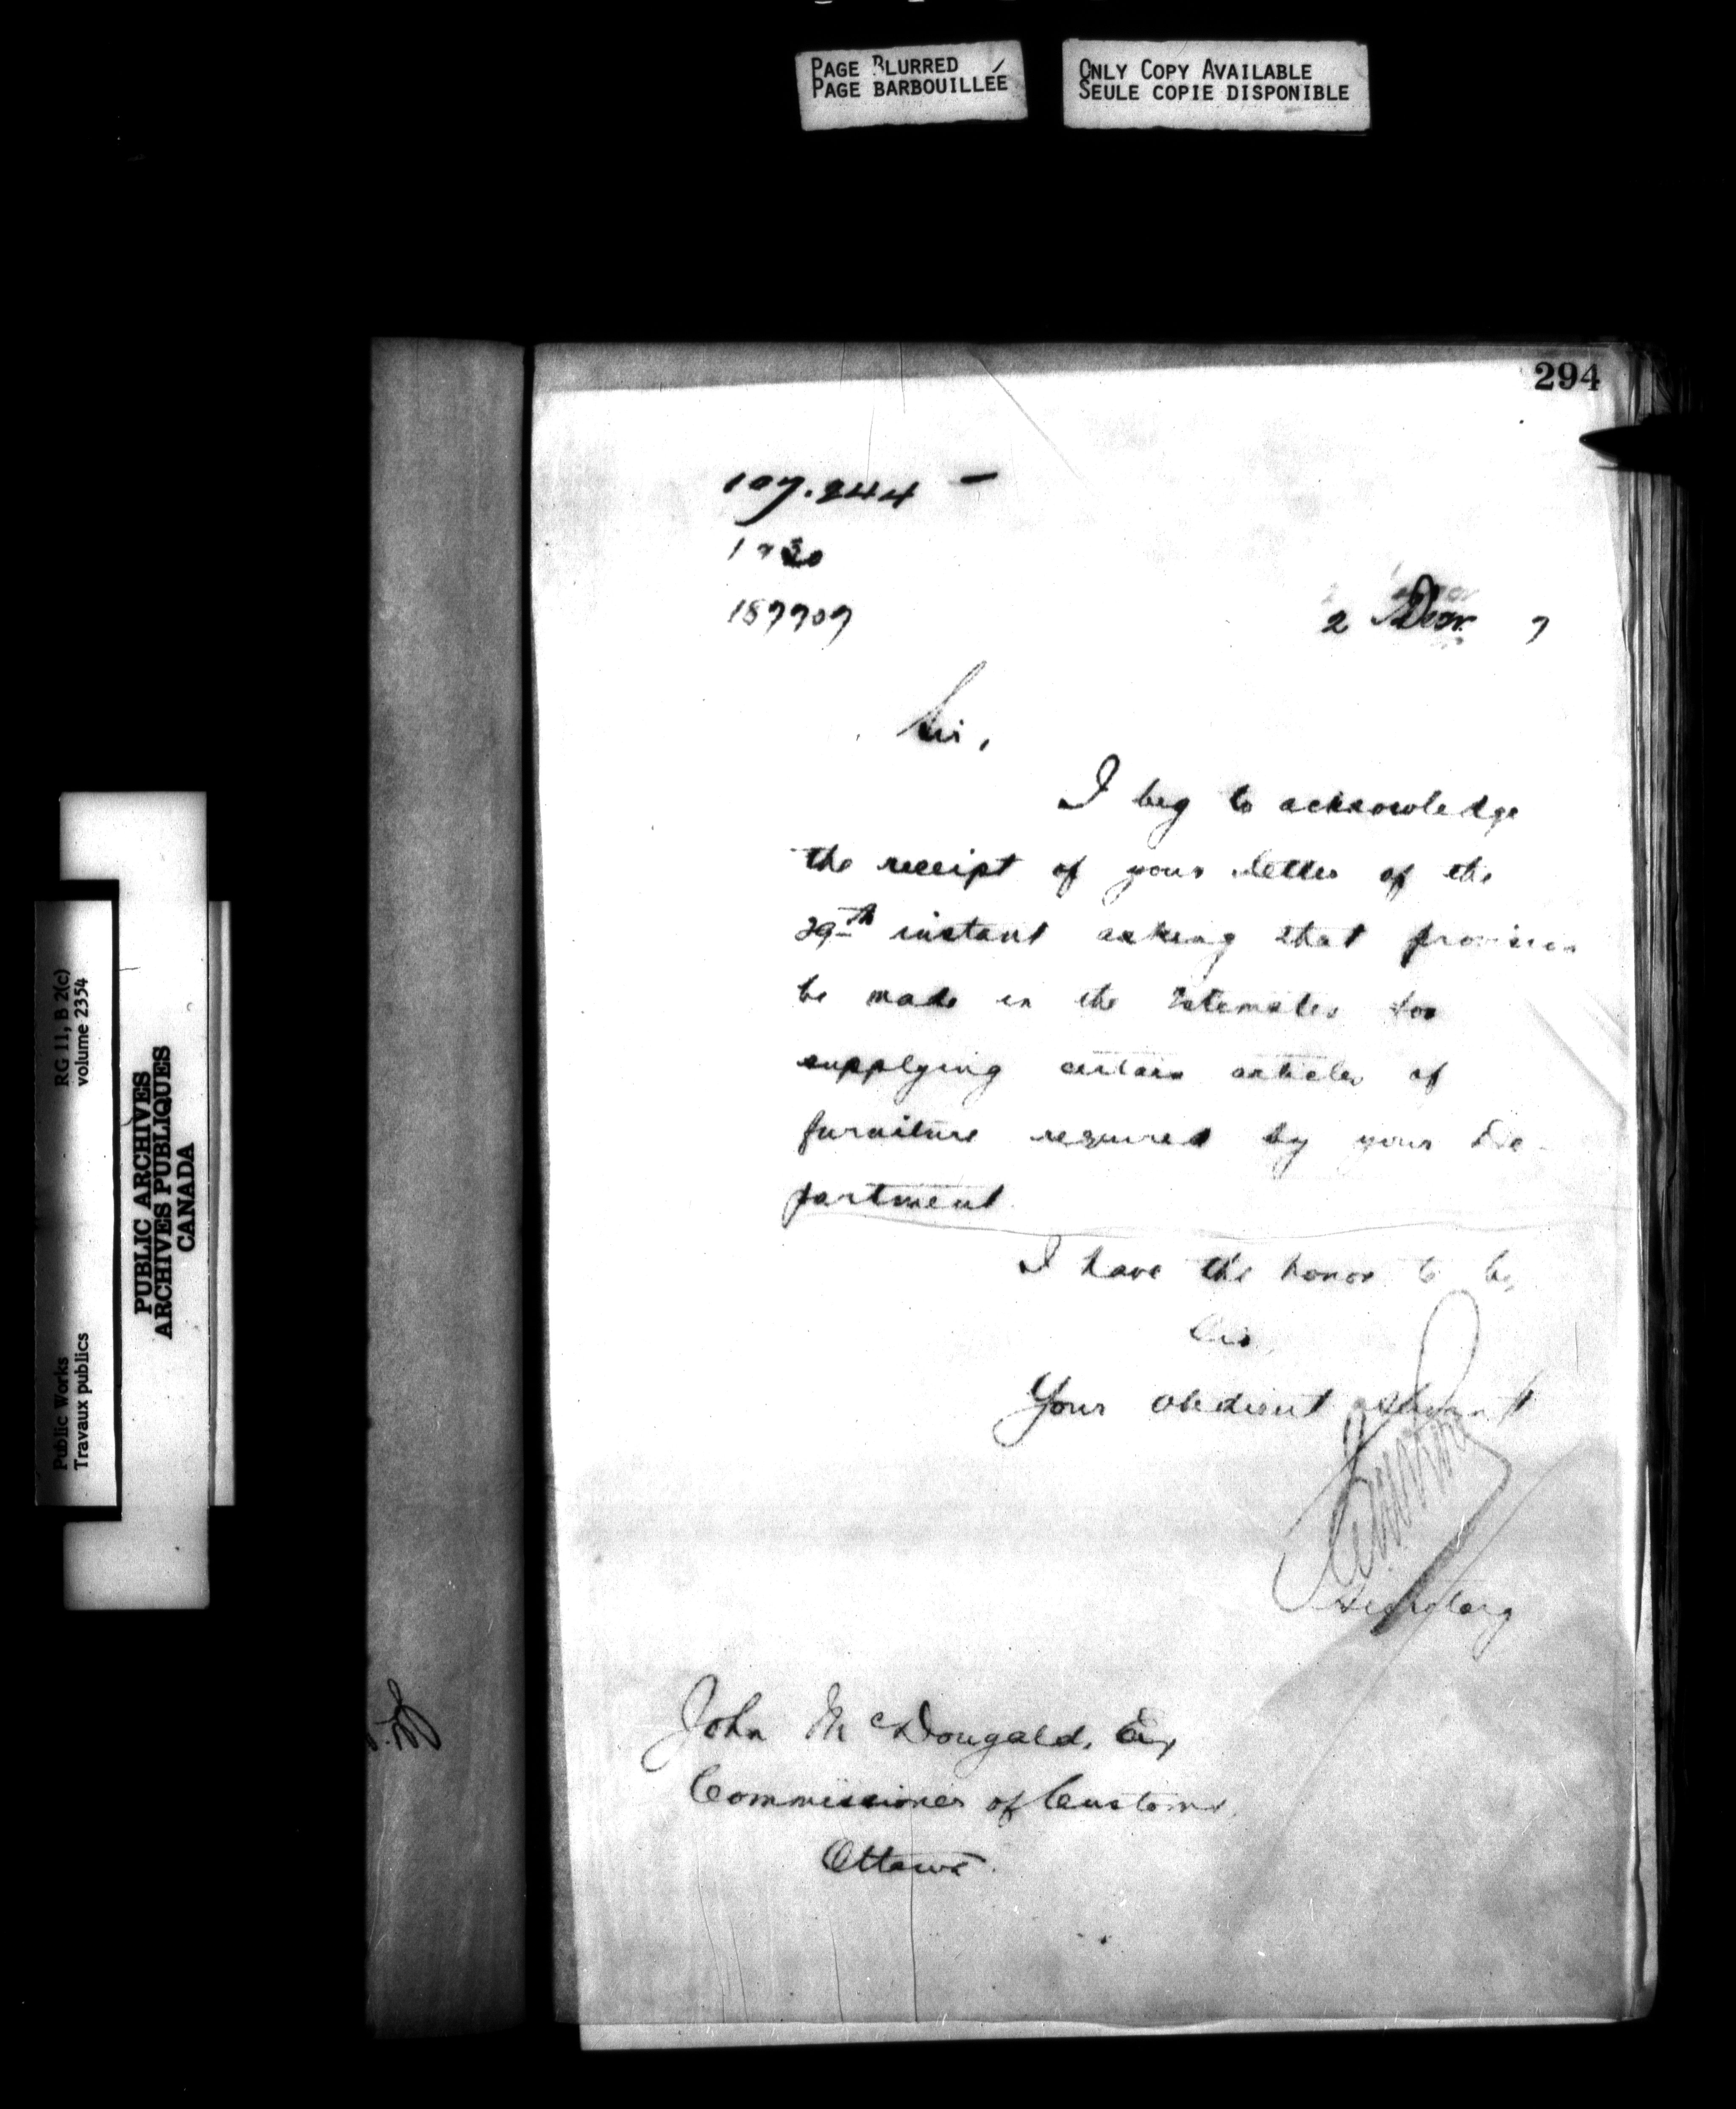 PAGE BLURRED
PAGE BARBOUILLÉE
ONLY COPY AVAILABLE
SEULE COPIE DISPONIBLE
294
107.244 –
187707
2 Decr. 7
Sir,
I beg to acknowledge
the receipt of your letter of the
29th instant asking that provision
be made in the Estimates for
supplying certain articles of
furniture required by your De-
partment
I have the honor to be,
Sir,
Your obedient servant
Secretary
John McDougald, Esq
Commissioner of Customs.
Ottawa.
Public Works
Travaux publics
RG 11, B 2(c)
volume 2354
PUBLIC ARCHIVES
ARCHIVES PUBLIQUES
CANADA